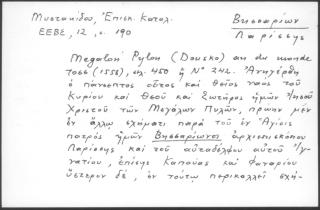 Μυστακίδου, Ἐπισκ. Κατάλ.
Βησσαρίων
ΕΕΒΣ, 12, σ. 190
Λαρίσσης
Megalon Pylon (Dousko) an du monde
7066 (1558), σελ. 450 ἢ N° 242. Ἀνηγέρθη
ὁ πάνσεπτος οὗτος καὶ θεῖος ναὸς τοῦ
Κυρίου καὶ Θεοῦ καὶ Σωτῆρος ἡμῶν Ἰησοῦ
Χριστοῦ τῶν Μεγάλων Πυλῶν, πρώην μὲν
ἐν ἄλλῳ σχήματι παρὰ τοῦ ἐν Ἁγίοις
πατρὸς ἡμῶν Βησσαρίωνος ἀρχιεπισκόπου
Λαρίσσης καὶ τοῦ αὐταδέλφου αὐτοῦ Ἰγ-
νατίου, ἐπισκ. Καπούας καὶ Φαναρίου
ὕστερον δέ, ἐν τούτῳ περικαλλεῖ σχή-